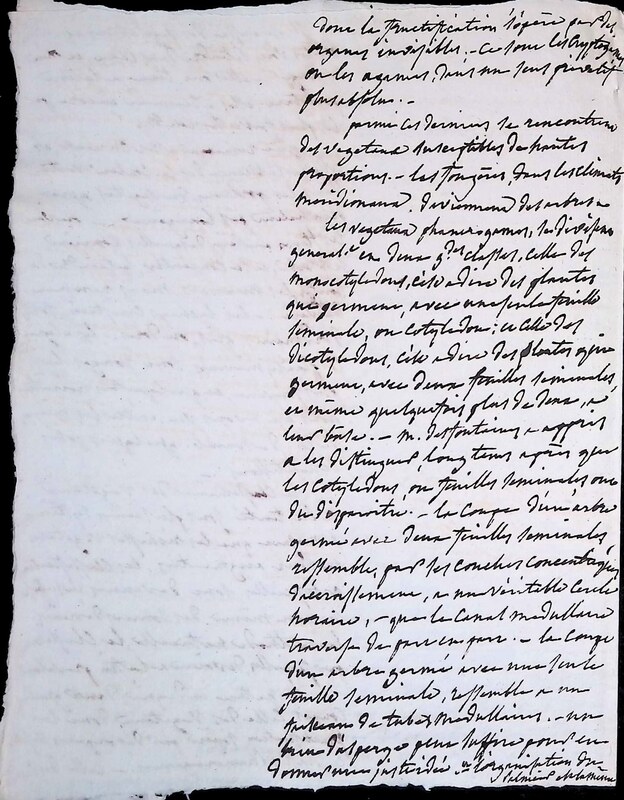 dont la fructification s'opère par des
organes invisibles. - ce sont les cryptogames
ou les agames, dans un sens privatif
plus absolu. -
parmi ces derniers se rencontrent
des vegetaux susceptibles de hautes
proportions. - les fougères, dans les climats
meridionaux, deviennent des arbres -
les vegetaux phanerogames, se divisent
general.t en deux g.des classes, celle des
monocotyledons, c'est a dire des plantes
qui germent, avec une seule feuille
seminale, ou cotyledon; et celle des
dicotyledons, c'est a dire des plantes qui
germent, avec deux feuilles seminales
et même quelquefois plus de deux, a
leur base. - m. desfontaines a appris
a les distinguer, longtems après que
les cotyledons, ou feuilles seminales ont
du disparoitre. - la coupe d'un arbre
germé avec deux feuilles seminales
ressemble, par ses couches concentriques
d'accroissement, a un véritable cercle
horaire, - que le canal medullaire
traverse de part en part. - la coupe
d'un arbre germé avec une seule
feuille seminale, ressemble a un
faisceau de tubes medullaires. - un
brin d'asperge peut suffire pour en
donner une juste idée. l'organisation du
palmier est la même